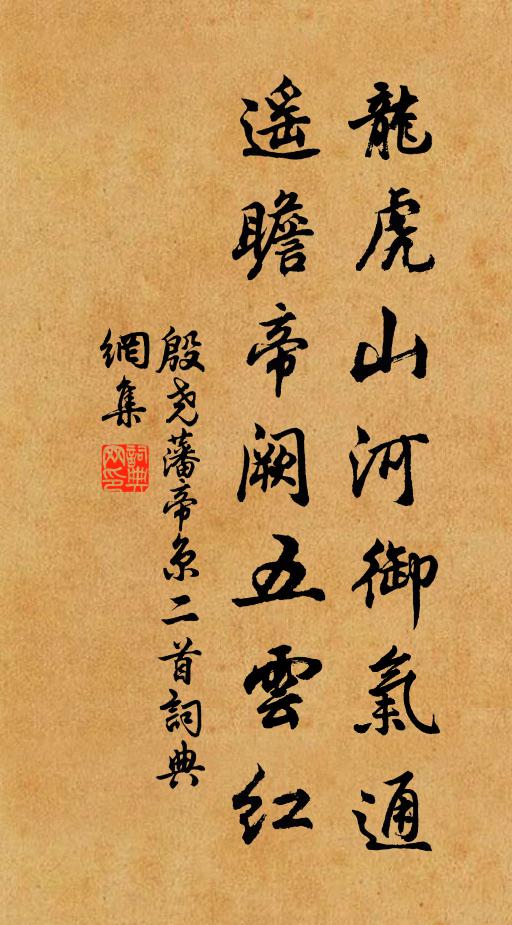 龍虎山河御氣通
遙瞻帝闕五雲紅
殷尧藩帝京二首詞典
網集
詞典網印